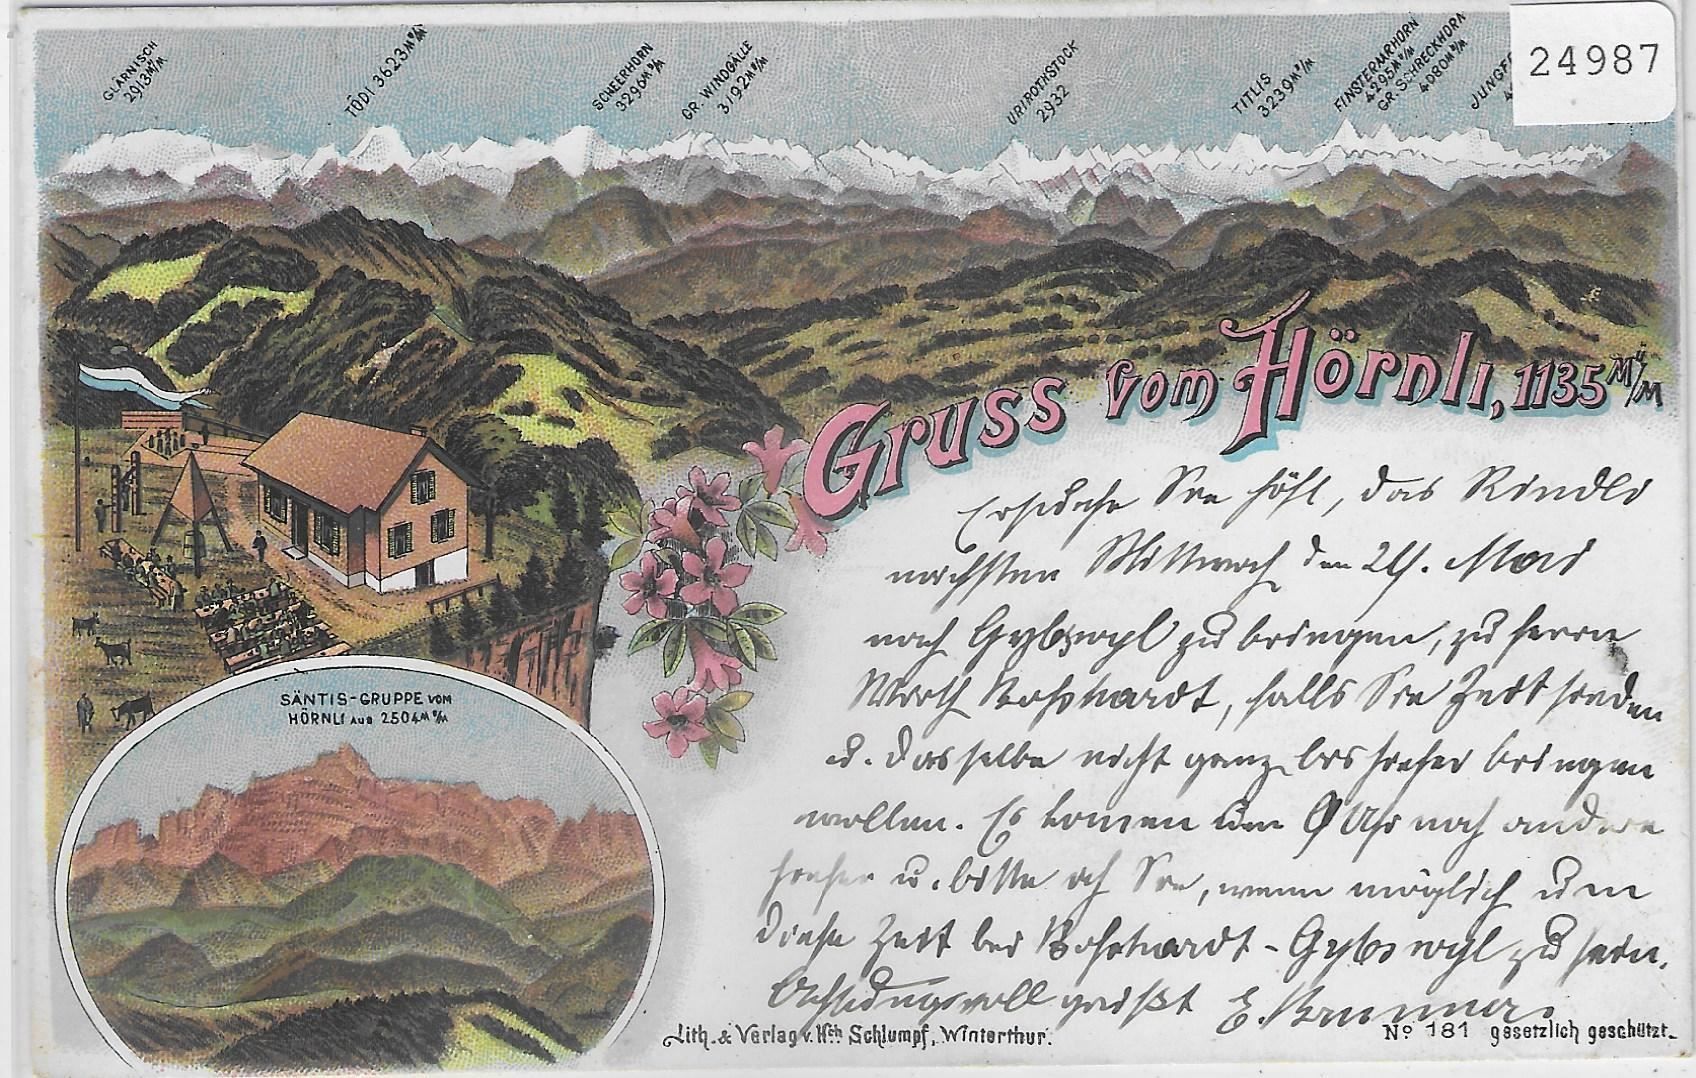 24987
GLÄRNISCH
2913 M/M
TÖDI 3623 M Ü/M
SCHEERHORN
3296 M Ü/M
GR. WINDGÄLLE
3192 M Ü/M
URIROTHSTOCK
2932
TITLIS
3239 M Ü/M
FINSTERAARHORN
4295 M Ü/M
GR. SCHRECKHORN
4080 M Ü/M
JUNGF
Gruss vom Hörnli, 1135 M Ü/M
Ersuche Sie höfl, das Rindli
nächsten Mittwoch den 24. Mai
nach Gybswyl zu bringen, zu Herrn
Wirth Boßhardt, falls Sie Zeit finden
u. dasselbe nicht ganz bis hieher bringen
wollen. Es komen um 9 Uhr noch andere
hieher u. bitte ich Sie, wenn möglich um
diese Zeit bei Boßhardt - Gybswyl zu sein.
Achtungsvoll grüßt E. Brunner.
SÄNTIS-GRUPPE VOM
HÖRNLI AUS 2504 M Ü/M
Lith. & Verlag v. Hch Schlumpf, Winterthur.
No 181 gesetzlich geschützt.